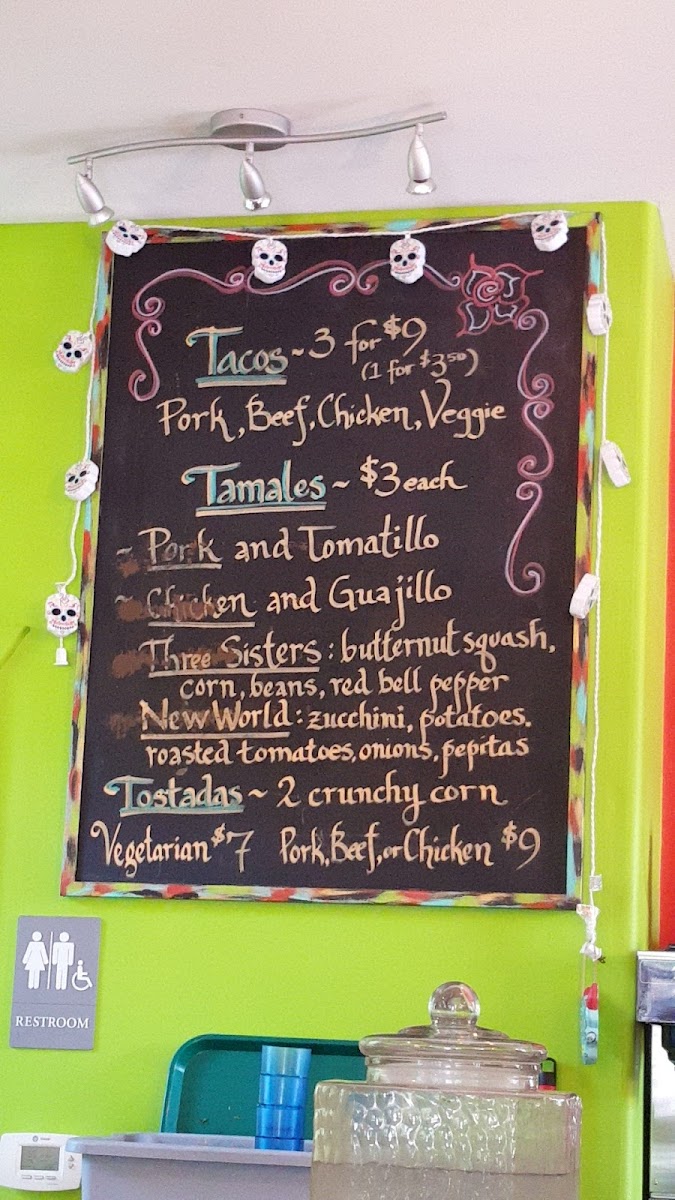 Tacos ~ 3 for $9
(1 for $3.50)
Pork, Beef, Chicken, Veggie
Tamales ~ $3 each
~ Pork and Tomatillo
~ Chicken and Guajillo
Three Sisters: butternut squash,
corn, beans, red bell pepper
New World: zucchini, potatoes.
roasted tomatoes, onions, pepitas
Tostadas ~ 2 crunchy corn
Vegetarian $7 Pork, Beef, or Chicken $9
RESTROOM